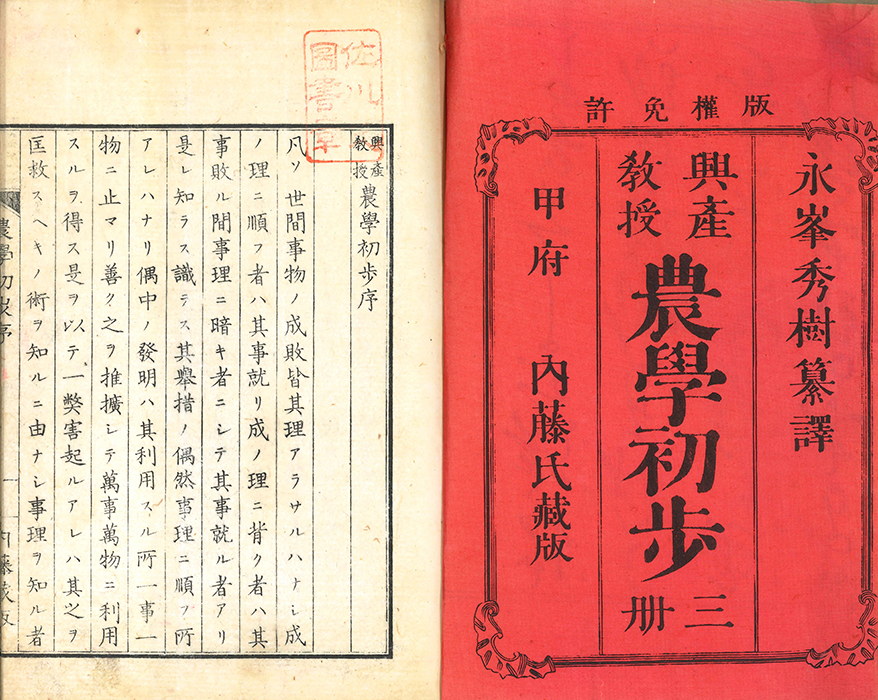 版權免許
永峯秀樹纂譯
興產
教授
農學初步
三冊
甲府 內藤氏藏版
佐川
圖書
興產
教授
農學初步序
凡ソ世間事物ノ成敗皆其理アラサルハナシ成
ノ理ニ順フ者ハ其事就リ成ノ理ニ背ク者ハ其
事敗ル間事理ニ暗キ者ニシテ其事就ル者アリ
是レ知ラス識ラス其舉措ノ偶然事理ニ順フ所
アレハナリ偶中ノ發明ハ其利用スル所一事一
物ニ止マリ善ク之ヲ推擴シテ萬事萬物ニ利用
スルヲ得ス是ヲ以テ一弊害起ルアレハ其之ヲ
匡救スヘキノ術ヲ知ルニ由ナシ事理ヲ知ル者
農學初步序 一 內藤藏版